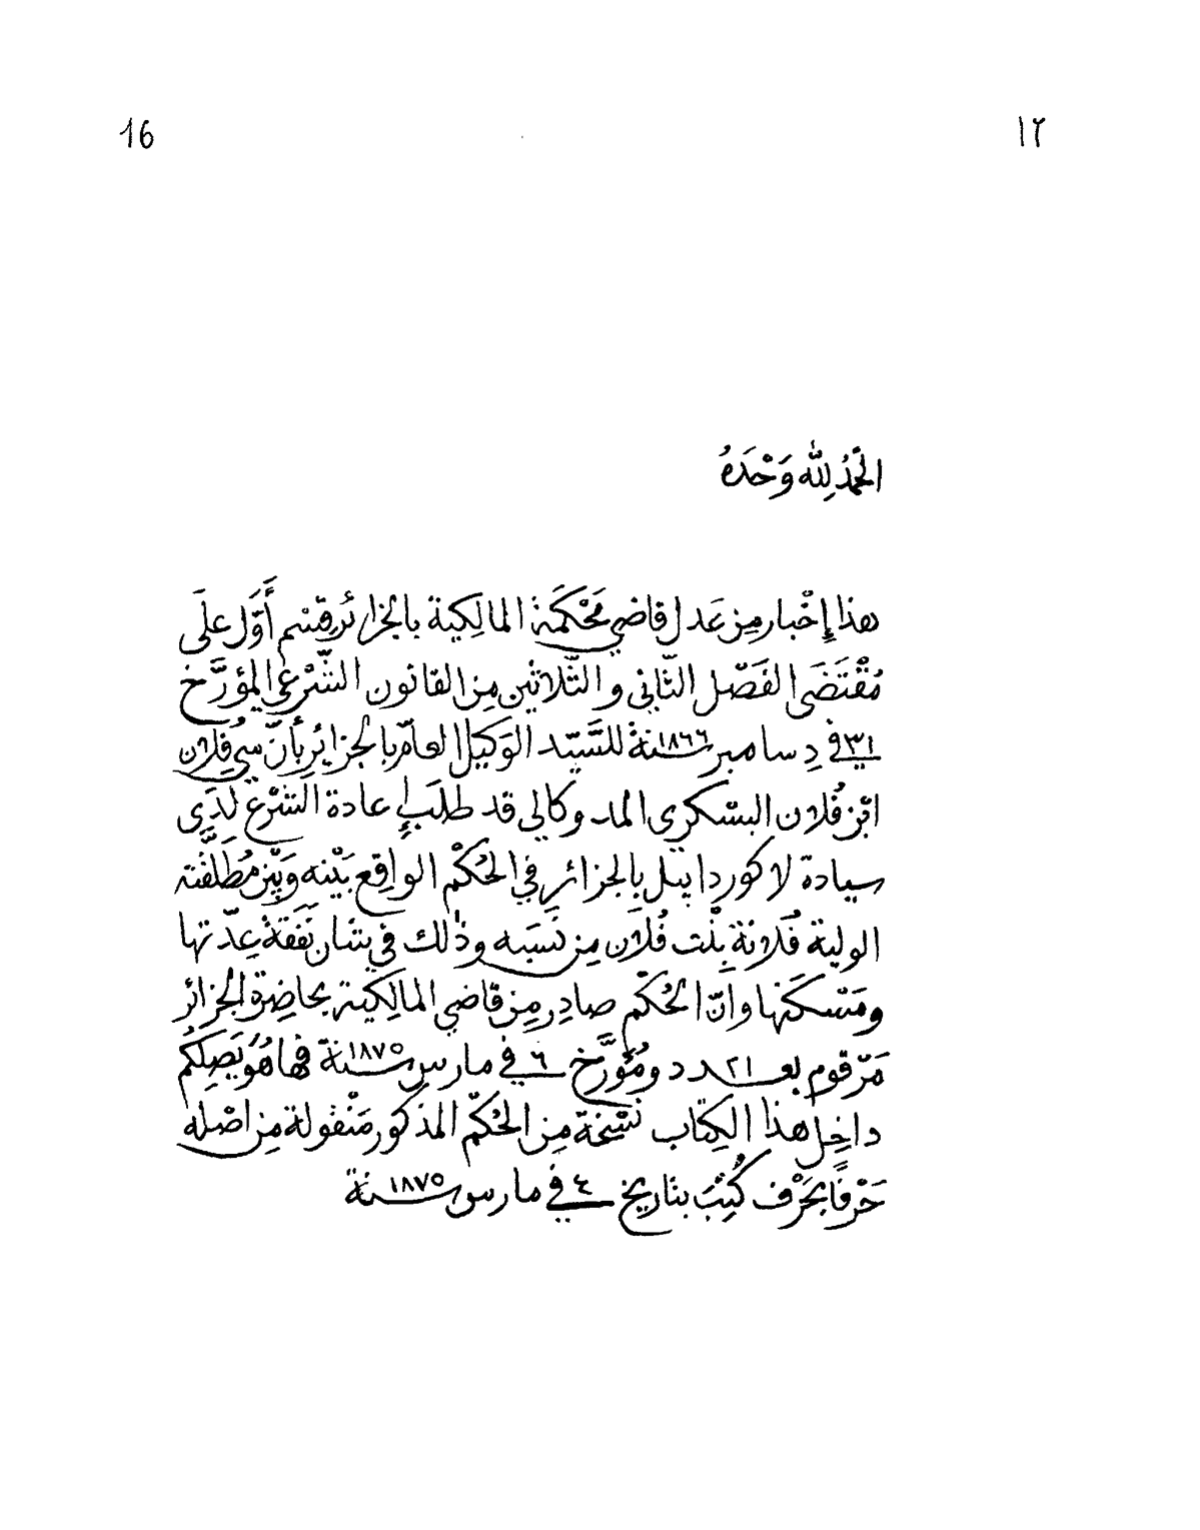 16
١٢
الحَمْدُ لِلّٰه وَحْدَهُ
هذا إِخْبار مِن عَدل قاضي مَحْكَمَة المالِكية بالجزائر قِسْم أَوَّل علَى
مُقْتَضَى الفَصْل الثّاني والثّلاثين مِن القانون الشّرْعي المؤرَّخ
في ٣١ دِسامبر سنة ١٨٦٦ للسَّيّد الوَكيل العامّ بالجزائِر بأَنّ سي فُلان
ابْن فُلان البسْكري المـ وكالي قد طلَب إِعادة الشّرْع لَدَى
سيادة لاكور دابيل بالجزائر في الحُكْم الواقِع بَيْنه وَبَيْن مُطَلَّقَته
الولية فُلانة بِنْت فُلان مِن نَسَبه وذٰلك في شان نَفَقَة عِدّتها
ومَسْكَنها وانّ الحُكْم صادِر مِن قاضي المالِكيّة بحاضِرة الجزائر
مَرْقوم بعـ٢١ـدد ومُؤرَّخ في ٦ مارس سنة ١٨٧٥ فها هُوَ يَصِلكُم
داخِل هذا الكِتاب نُسْخة مِن الحُكْم المذكور مَنْقولة مِن اصْله
حَرْفًا بحَرْف كُتِبَ بتاريخ ٤ في مارس سنة ١٨٧٥